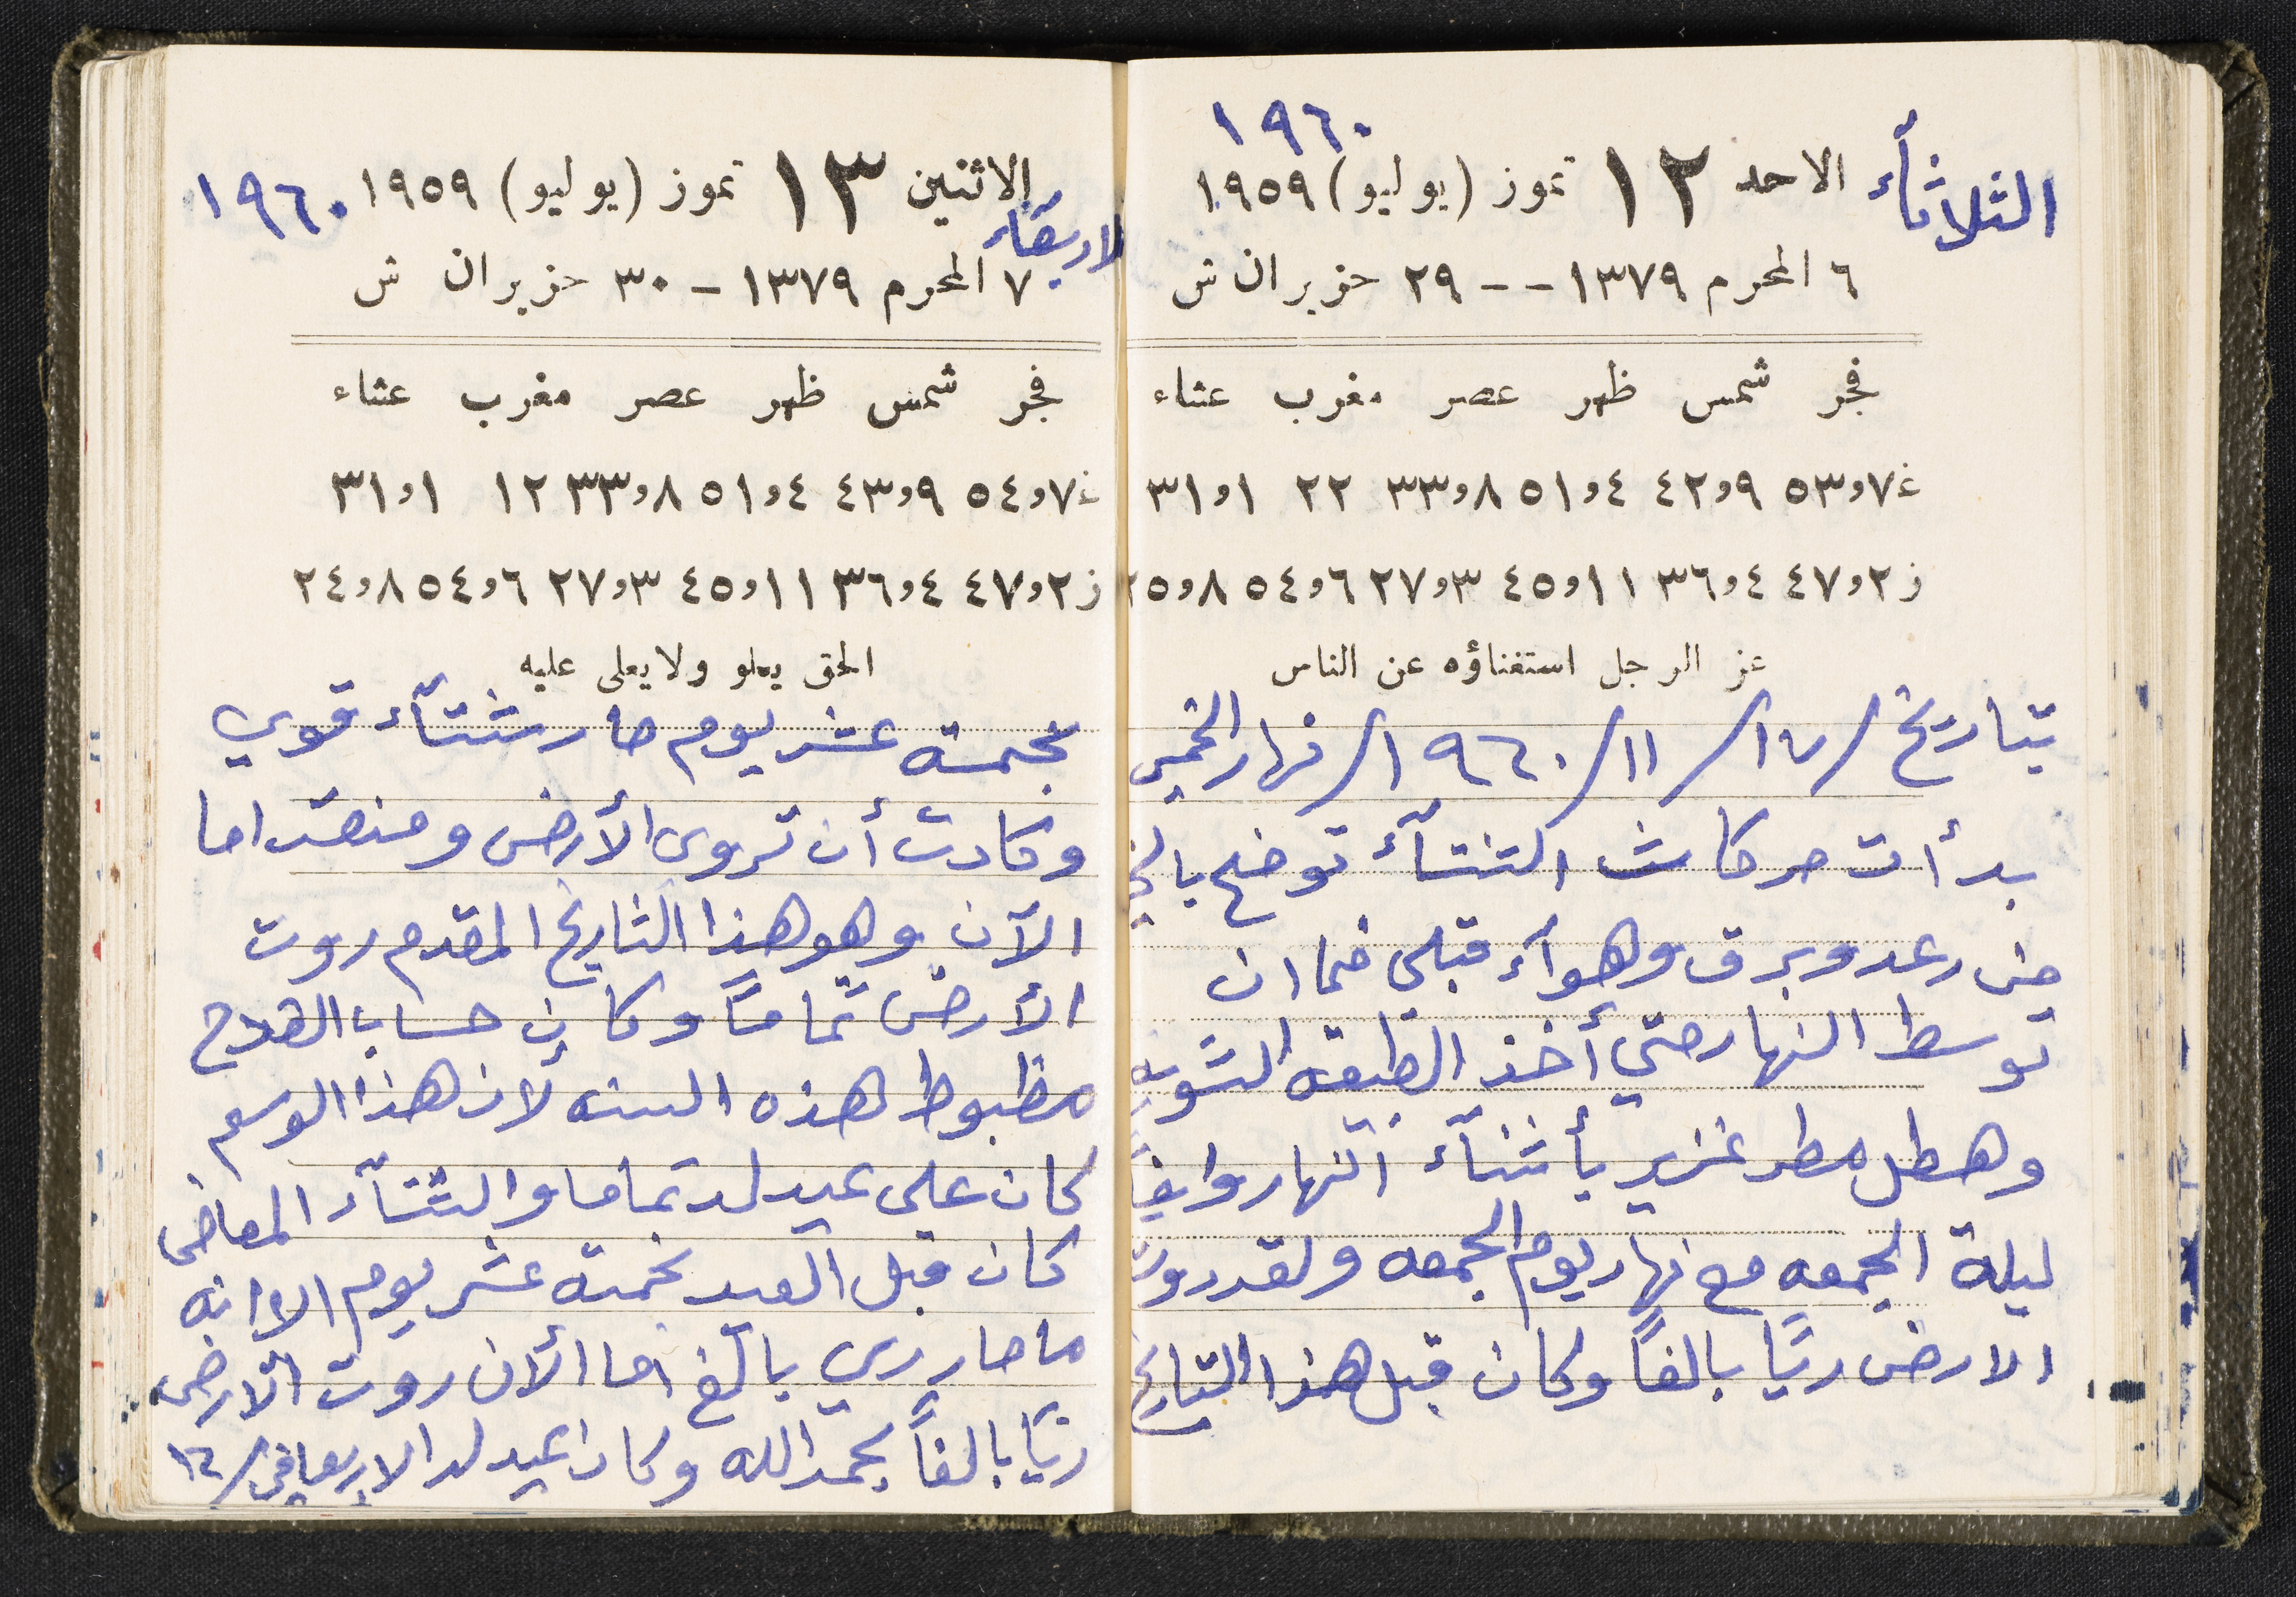 ١٩٦٠
الثلاثآء الاحد ١٢ تموز (يوليو) ١٩٥٩
٦ المحرم ١٣٧٩ -- ٢٩ حزيران ش
فجر شمس ظهر عصر مغرب عشاء
غ ٧و٥٣ ٩و٤٢ ٤و٥١ ٨و٣٣ ٢٢ ١و٣١
ز ٢و٤٧ ٤و٣٦ ١١و٤٥ ٣و٢٧ ٦و٥٤ ٨و٢٥
عز الرجل استغناؤه عن الناس
بتاريخ /١٧/ ١١/ ١٩٦٠/ نهار الخميس
بدأت حركات الشتآء توضح
من رعد وبرق وهوآء قبلي فما ان
توسط النهار حتي أخذ الطبقه
وهطل مطر غزير بأثنآء النهار وايضاً
ليلة الجمعه مع نهار يوم الجمعه ولقد روت
الارض ريًا بالغاً وكان قبل هذا التاريخ
الاثنين ١٣ تموز (يوليو) ١٩٥٩ ١٩٦٠
الاربعآء
٧ المحرم ١٣٧٩ - ٣٠ حزيران ش
فجر شمس ظهر عصر مغرب عشاء
غ ٧و٥٤ ٩و٤٣ ٤و٥١ ٨و٣٣ ١٢ ١و٣١
ز ٢و٤٧ ٤و٣٦ ١١و٤٥ ٣و٢٧ ٦و٥٤ ٨و٢٤
الحق يعلو ولا يعلى عليه
بخمسة عشر يوم صار شتآء قوي
وكادت أن تروى الأرض ومنعت اما
الآن وهو هذا التاريخ المقدم روت
الأرض تماماً وكان حساب
مظبوط هذه السنه لان هذا الوسم
كان على عيد لد تماما والشتآء الماضى
كان قبل العيد بخمسة عشر يوم الا انه
ما صار ري بالغ اما الأن روت الارض
ريًا بالغاً بحمد الله وكان عيد لد الاربعا في /١٦